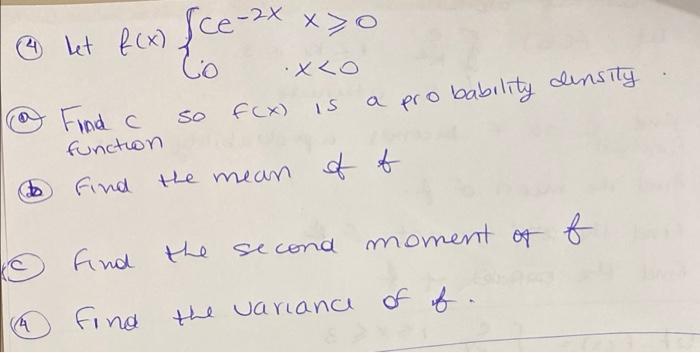 ④ Let f(x) { ce^-2x x ⩾ 0
0 · x < 0
ⓐ Find c so f(x) is a probability density .
function
ⓑ Find the mean of f
ⓒ Find the second moment of f
④ Find the variance of f .